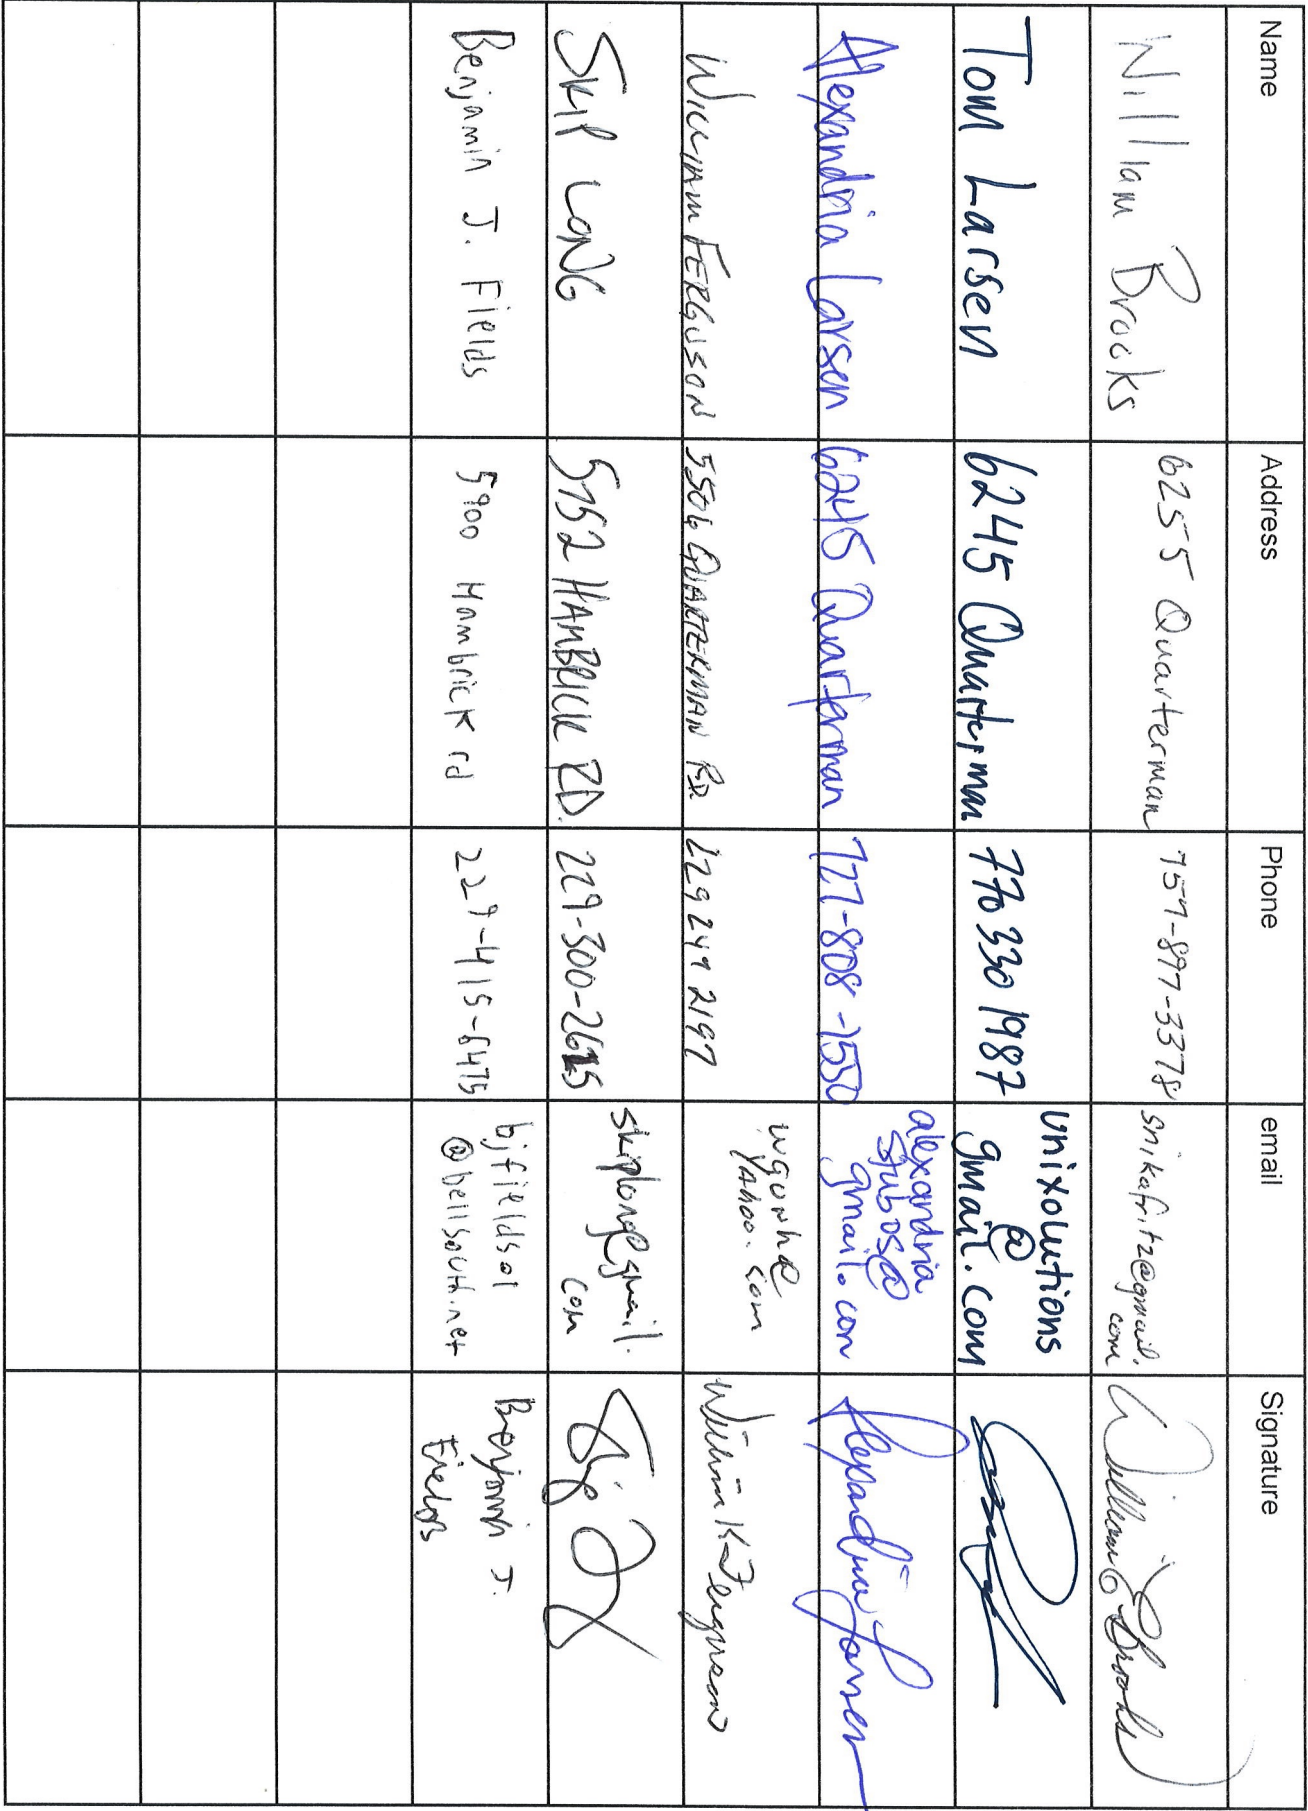 Name Address Phone email Signature
William Brooks 6255 Quarterman 757-897-3378 snikafritz@gmail.
com William Brooks
Tom Larsen 6245 Quarterman 770 330 1987 unixolutions
@
gmail.com
Alexandria Larsen 6245 Quarterman 727-808-7550 alexandria
stubos@
gmail.com Alexandria Larsen
WILLIAM FERGUSON 5506 QUARTERMAN RD 229 247 2197 wgunh@
yahoo.com William K Ferguson
SKIP LONG 5152 HAMBRICK RD. 229-300-2615 skiplong@gmail.
com
Benjamin J. Fields 5900 Hambrick rd 229-415-6475 bjfields01
@bellsouth.net Benjamin J.
Fields